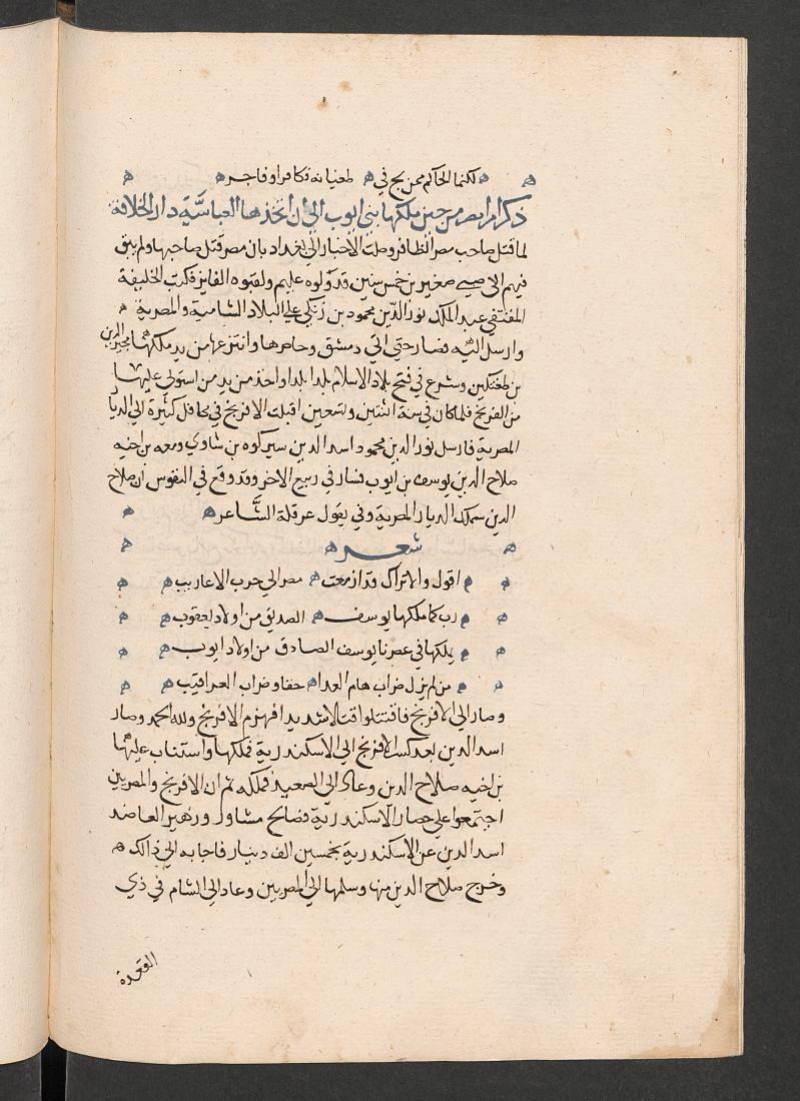 لكنما الحاكم ممن يج في طغيانه فكافرا وفاجر
ذكر امرا مصر من حين ملكها بني ايوب الى ان اتخذها العباسية دار الخلافة
لما قتل صاحب مصر الظافر وصلت الاخبار الى بغداد بان مصر قتل صاحبها ولم يبق
فيهم الا صبي صغير بن خمس سنين قد ولوه عليهم ولقبوه الفايز فكتب الخليفة
المقتفي عبد الملك نور الدين محمود بن زنكي على البلاد الشامية والمصرية
وارسل اليه فسار حتى اتى دمشق وحاصرها وانتزعها من يد ملكها مجير الدين
بن طغتكين وشرع في فتح بلاد الاسلام بلدا بلدا واخذ من يد من استولى عليها
من الفرنج فلما كان في سنة اثنتين وتسعين اقبلت الافرنج في محافل كثيرة الى الديار
المصرية فارسل نور الدين محمود اسد الدين سيركوه بن شاوي ومعه بن اخيه
صلاح الدين يوسف بن ايوب فسار في ربيع الاخر وقد وقع في النفوس ان صلاح
الدين سيملك الديار المصرية وفي يقول عرقلة الشاعر
شعر
اقول والاتراك قد ازمعت مصر الى حرب الاعاريب
رب كما ملكها يوسف الصديق من اولاد يعقوب
يملكها في عصرنا يوسف الصادق من اولاد ايوب
من لم يزل ضراب هام العدا حقا وضراب العراقيب
وصار الى الافرنج فاقتتلوا قتالا شديدا فهزم الافرنج ولله الحمد وصار
اسد الدين بعد كسر الافرنج الى الاسكندرية فملكها واستناب عليها
بن اخيه صلاح الدين وعاد الى الصعيد فملكه ثم ان الافرنج والمصريين
اجتمعوا على حصار الاسكندرية فصالح مشاور وزير العاضد
اسد الدين عن الاسكندرية بخمسين الف دينار فاجابه الى ذالك
وخرج صلاح الدين منها وسلمها الى المصريين وعاد الى الشام في ذي
القعدة